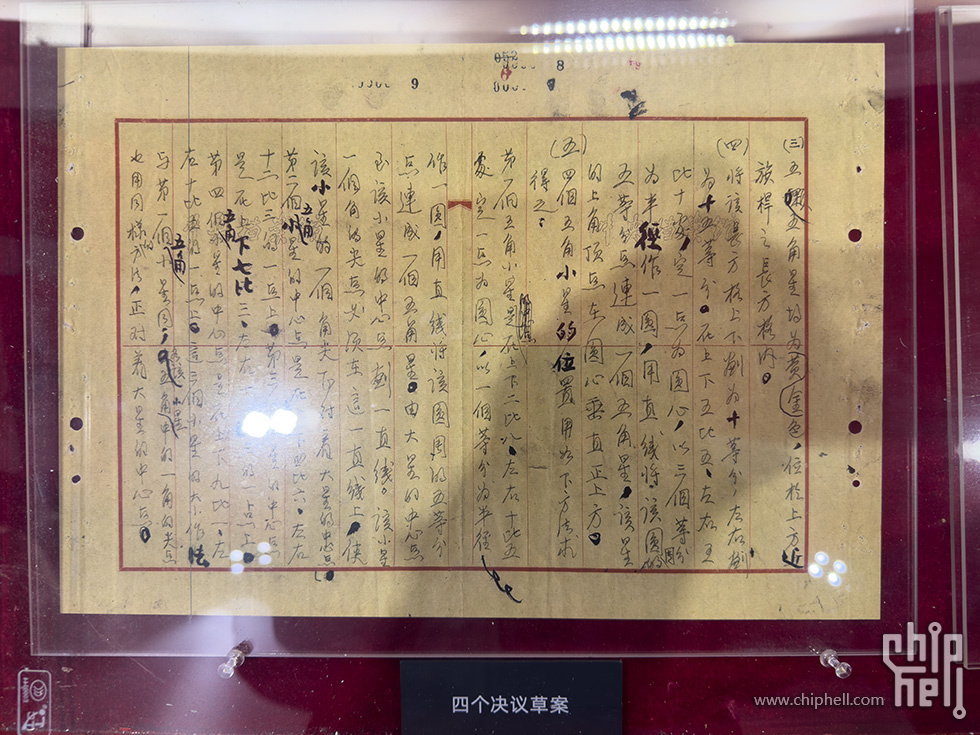 8
9
(三)五顆五角星均为黄金色，位於上方近
旗桿之長方格內。
(四)将该長方格上下劃为十等分，左右劃
为十五等分。在上下五比五、左右五
比十處，定一点为圆心，以三個等分
为半徑作一圆，用直线将该圆
五等分点連成一個五角星，该星
的上角顶点在圆心垂直正上方。
(五)四個五角小星的位置用如下方法求
得之：
第一個五角小星是在上下二比八、左右十比五
處定一点为圆心，以一個等分为半徑
作一圆，用直线将该圆周的五等分
点連成一個五角星。由大星的中心点
至该小星的中心点劃一直线。该小星
一個角的尖点必須在這一直线上，使
该小星的一個角尖 对着大星的中心点。
第二個五角小星的中心点是在上下四比六、左右
十二比三的一点上。第三 星的中心点
是在上下七比三、左右 的一点上。
第四個五角 星的中心点是在上下九比一、左
右十比五的一点上。這三個小星的大小作法
与第一個五角小星同， 五角中的一角的尖点
也用同樣的方法，正对着大星的中心点。
四个决议草案
chip
hell
www.chiphell.com